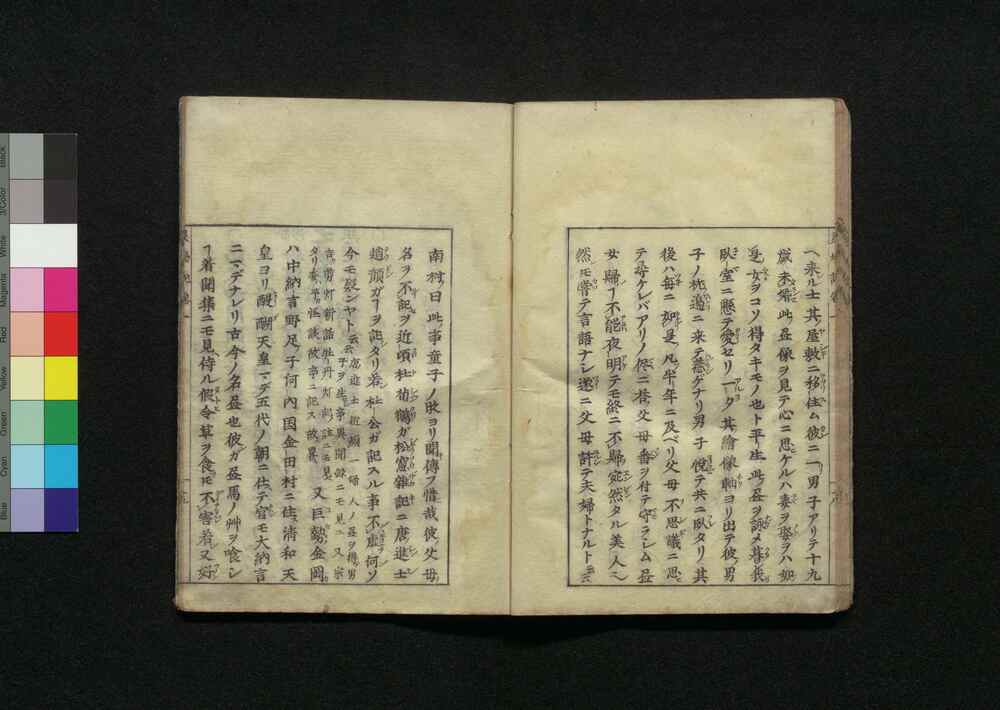 ヘ来ル士其屋敷ニ移住ム彼ニ一男子アリテ十九
歳未婚此畫像ヲ見テ心ニ思ケルハ妻ヲ娶ラハ如
是女ヲコソ得タキモノ也ト平生此畫ヲ詠メ暮我
臥室ニ懸テ愛セリ一夕其繪像軸ヨリ出テ彼男
子ノ枕邉ニ来テ ケナリ男子悦テ共ニ臥タリ其
後ハ毎ニ如是凡半年ニ及ベリ父母不思議ニ思
テ尋ケレバアリノ侭ニ荅父母番ヲ付テ守ラシム畫
女歸ヿ不能夜明テモ終ニ不歸宛然タル美人ニ
然モ嘗テ言語ナシ遂ニ父母計テ夫婦トナルト云云
南村曰此事童子ノ時ヨリ聞傳フ惜哉彼父母
名ヲ不記ヲ近頃杜荀鶴ガ松窻雜記ニ唐進士
趙顔ガヿヲ記タリ若杜公ガ記スル事不虚何ソ
今モ疑ンヤト云云 唐進士趙顔一婦人ノ畫ヲ得男
子ヲ生事異聞録ニモ見ユ又宗
吉剪灯新話牡丹灯記註ニモ見
タリ奉華怪談故亭ニ記ス故畧
又巨勢金岡
ハ中納言野足ノ子河内國金田村ニ住清和天
皇ヨリ醍醐天皇マデ五代ノ朝ニ仕テ官モ大納言
ニマデナレリ古今ノ名畫也彼ガ畫馬ノ艸ヲ喰シ
ヿ着聞集ニモ見侍ル假令草ヲ食モ不害若又好